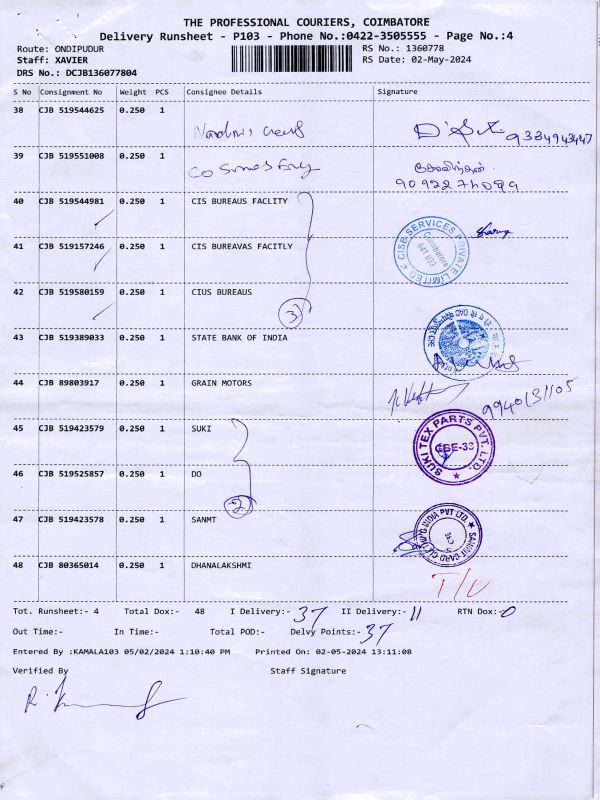 THE PROFESSIONAL COURIERS, COIMBATORE
Delivery Runsheet - P103 - Phone No.:0422-3505555 - Page No.:4
Route: ONDIPUDUR
RS No.: 1360778
Staff: XAVIER
RS Date: 02-May-2024
DRS No.: DCJB136077804
S No Consignment No Weight PCS Consignee Details Signature
38 CJB 519544625 0.250 1
39 CJB 519551008 0.250 1
40 CJB 519544981 0.250 1 CIS BUREAUS FACLITY
41 CJB 519157246 0.250 1 CIS BUREAVAS FACITLY
CISB SERVICES PRIVATE LIMITED
Coimbatore
641 033
42 CJB 519580159 0.250 1 CIUS BUREAUS
3
43 CJB 519389033 0.250 1 STATE BANK OF INDIA
44 CJB 89803917 0.250 1 GRAIN MOTORS
9940131105
45 CJB 519423579 0.250 1 SUKI
SUKI TEX PARTS PVT. LTD.
CBE-33
46 CJB 519525857 0.250 1 DO
2
47 CJB 519423578 0.250 1 SANMT
48 CJB 80365014 0.250 1 DHANALAKSHMI
Tot. Runsheet:- 4 Total Dox:- 48 I Delivery:- 37 II Delivery:- 11 RTN Dox:- 0
Out Time:- In Time:- Total POD:- Delvy Points:- 37
Entered By :KAMALA103 05/02/2024 1:10:40 PM Printed On: 02-05-2024 13:11:08
Verified By Staff Signature